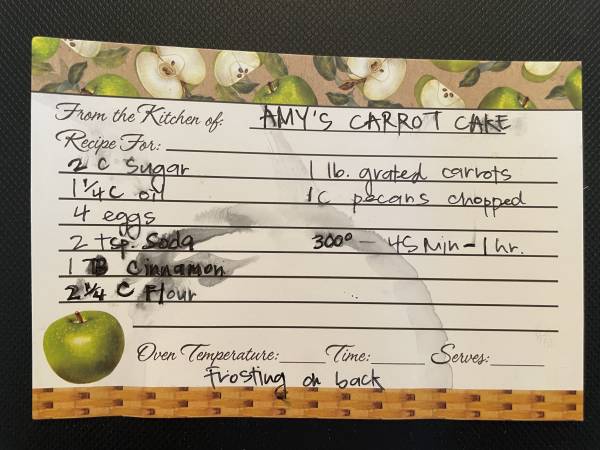 From the Kitchen of: AMY'S CARROT CAKE
Recipe For:
2 C Sugar 1 lb. grated carrots
1 1/4 C oil 1C pecans chopped
4 eggs
2 tsp. Soda 300° - 45 Min - 1 hr.
1 TB Cinnamon
2 1/4 C Flour
Oven Temperature: Time: Serves:
Frosting on back